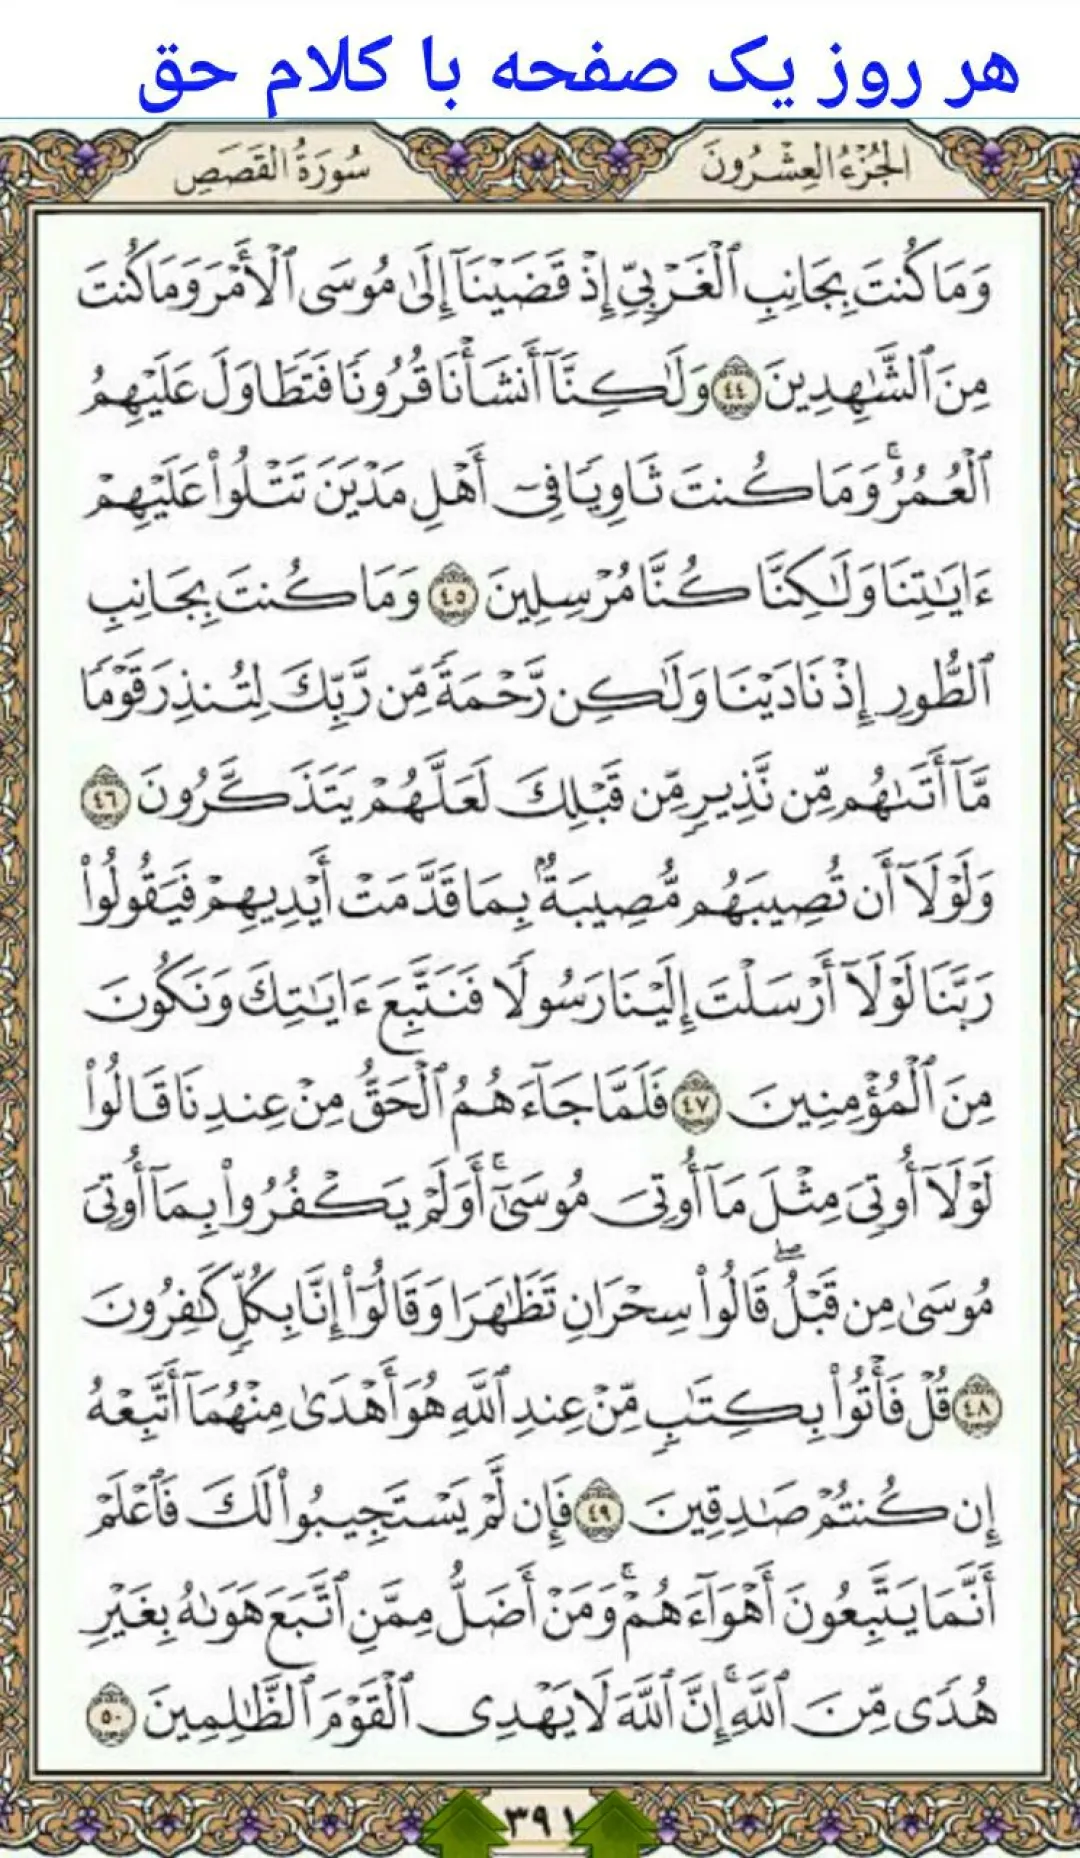 هر روز یک صفحه با کلام حق
الجُزْءُ العِشْرُونَ
سُورَةُ القَصَصِ
وَمَا كُنتَ بِجَانِبِ ٱلْغَرْبِىِّ إِذْ قَضَيْنَآ إِلَىٰ مُوسَى ٱلْأَمْرَ وَمَا كُنتَ
مِنَ ٱلشَّٰهِدِينَ ٤٤ وَلَٰكِنَّآ أَنشَأْنَا قُرُونًا فَتَطَاوَلَ عَلَيْهِمُ
ٱلْعُمُرُ ۚ وَمَا كُنتَ ثَاوِيًا فِىٓ أَهْلِ مَدْيَنَ تَتْلُوا۟ عَلَيْهِمْ
ءَايَٰتِنَا وَلَٰكِنَّا كُنَّا مُرْسِلِينَ ٤٥ وَمَا كُنتَ بِجَانِبِ
ٱلطُّورِ إِذْ نَادَيْنَا وَلَٰكِن رَّحْمَةً مِّن رَّبِّكَ لِتُنذِرَ قَوْمًا
مَّآ أَتَىٰهُم مِّن نَّذِيرٍ مِّن قَبْلِكَ لَعَلَّهُمْ يَتَذَكَّرُونَ ٤٦
وَلَوْلَآ أَن تُصِيبَهُم مُّصِيبَةٌۢ بِمَا قَدَّمَتْ أَيْدِيهِمْ فَيَقُولُوا۟
رَبَّنَا لَوْلَآ أَرْسَلْتَ إِلَيْنَا رَسُولًا فَنَتَّبِعَ ءَايَٰتِكَ وَنَكُونَ
مِنَ ٱلْمُؤْمِنِينَ ٤٧ فَلَمَّا جَآءَهُمُ ٱلْحَقُّ مِنْ عِندِنَا قَالُوا۟
لَوْلَآ أُوتِىَ مِثْلَ مَآ أُوتِىَ مُوسَىٰٓ ۚ أَوَلَمْ يَكْفُرُوا۟ بِمَآ أُوتِىَ
مُوسَىٰ مِن قَبْلُ ۖ قَالُوا۟ سِحْرَانِ تَظَٰهَرَا وَقَالُوٓا۟ إِنَّا بِكُلٍّ كَٰفِرُونَ
٤٨ قُلْ فَأْتُوا۟ بِكِتَٰبٍ مِّنْ عِندِ ٱللَّهِ هُوَ أَهْدَىٰ مِنْهُمَآ أَتَّبِعْهُ
إِن كُنتُمْ صَٰدِقِينَ ٤٩ فَإِن لَّمْ يَسْتَجِيبُوا۟ لَكَ فَٱعْلَمْ
أَنَّمَا يَتَّبِعُونَ أَهْوَآءَهُمْ ۚ وَمَنْ أَضَلُّ مِمَّنِ ٱتَّبَعَ هَوَىٰهُ بِغَيْرِ
هُدًى مِّنَ ٱللَّهِ ۚ إِنَّ ٱللَّهَ لَا يَهْدِى ٱلْقَوْمَ ٱلظَّٰلِمِينَ ٥٠
٣٩١